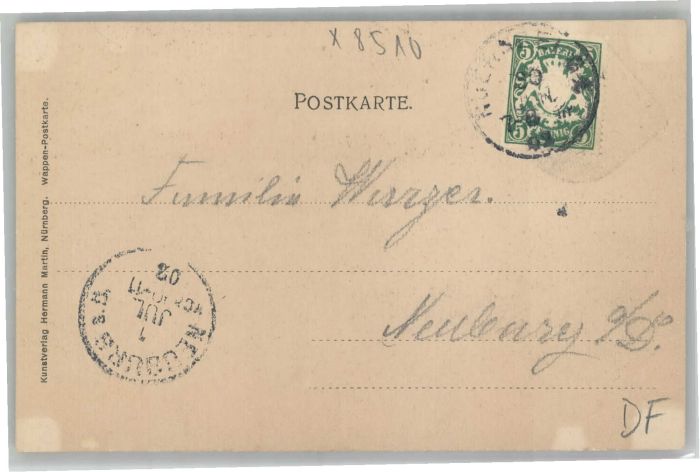 x 8510
BAYERN
5 5
PFENNIG
POSTKARTE.
Familie
Neuburg a/D.
NEUBURG a.D.
1
JUL
02
Kunstverlag Hermann Martin, Nürnberg. Wappen-Postkarte.
DF